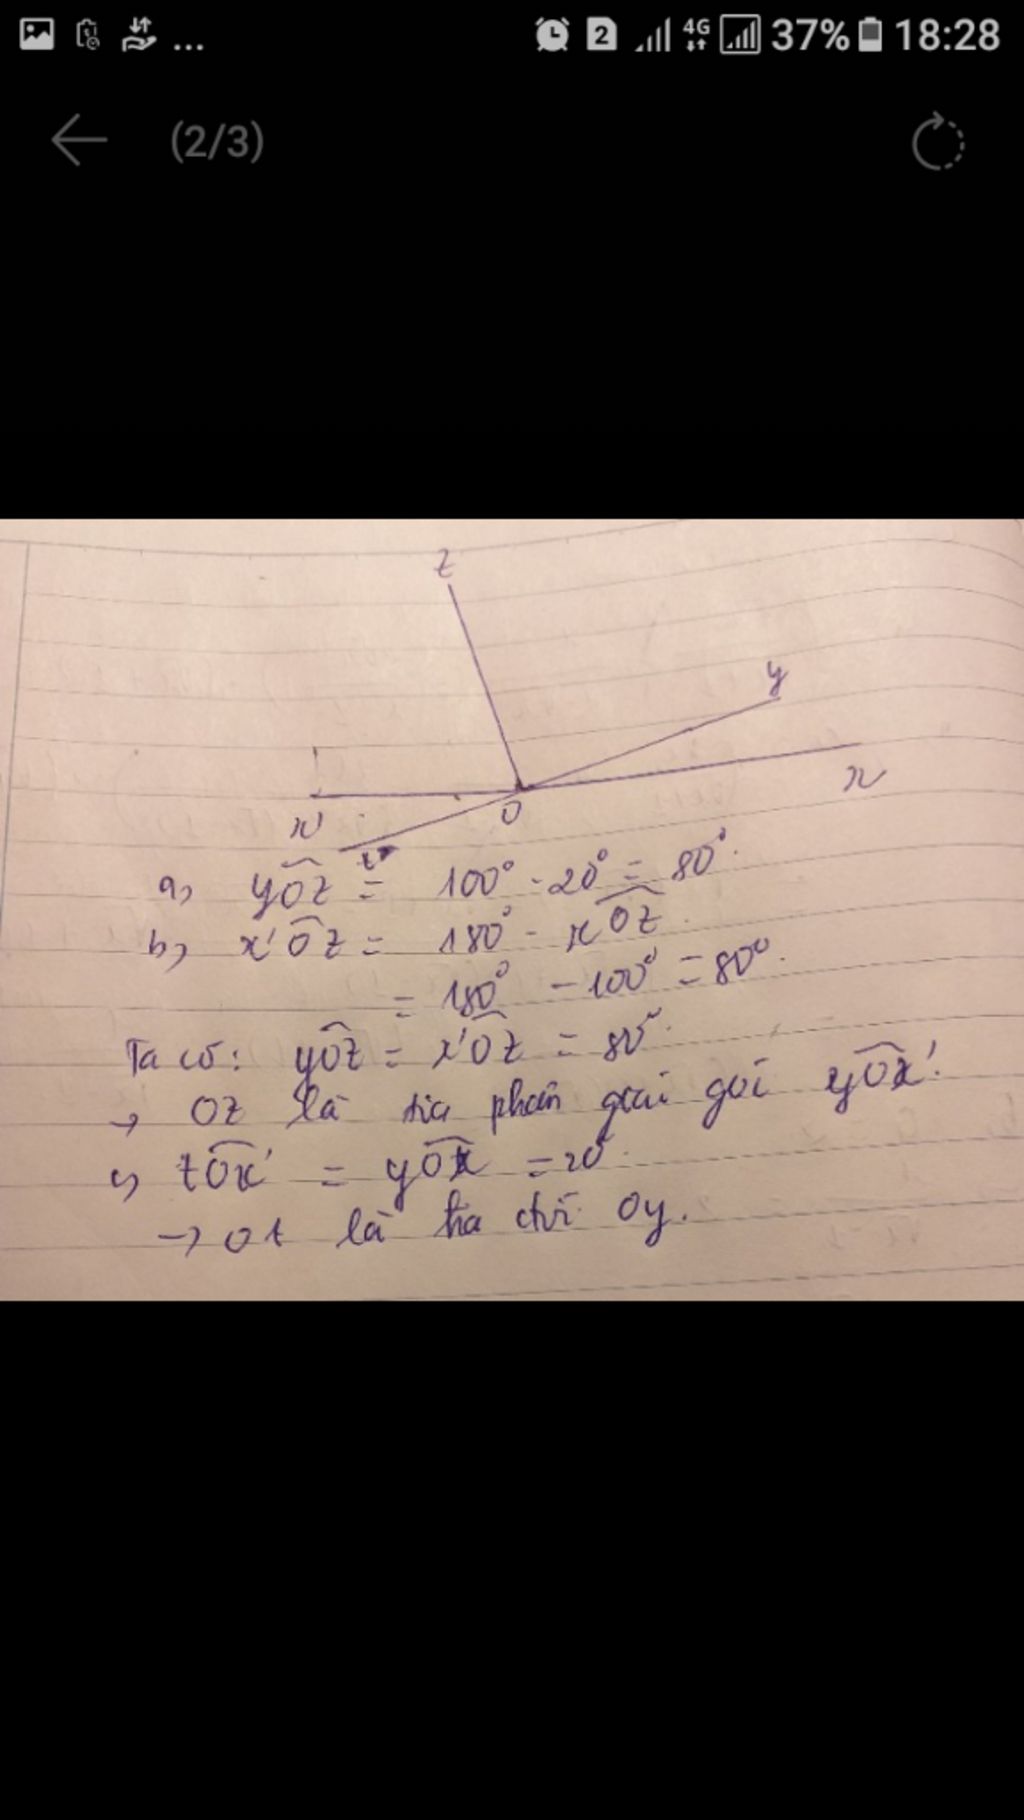 ... 2 4G 37% 18:28
(2/3)
z
y
x
x' O
t
a, yOz = 100° - 20° = 80°.
b, x'Oz = 180° - xOz.
= 180° - 100° = 80°.
Ta có: yOz = x'Oz = 80°.
→ Oz là tia phân giác góc yOx'.
c, tOx' = yOx = 20°.
→ Ot là tia đối Oy.